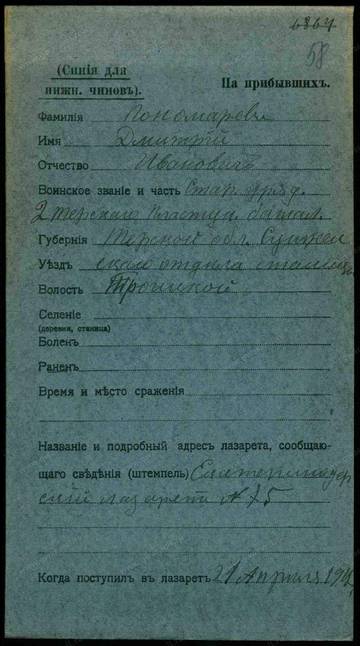 6864
58
(Синія для
нижн. чиновъ).
На прибывшихъ.
Фамилія Пономаревъ
Имя Дмитрій
Отчество Ивановичъ
Воинское званіе и часть Стар. уряд.
2 терскаго пластун. батал.
Губернія Терской обл. Сунжен
Уѣздъ скаго отдѣла станицы
Волость Троицкой
Селеніе
(деревня, станица)
Боленъ
Раненъ
Время и мѣсто сраженія
Названіе и подробный адресъ лазарета, сообщаю-
щаго свѣдѣнія (штемпель) Екатеринодар
скій лазаретъ №
Когда поступилъ въ лазаретъ 21 Апрѣля